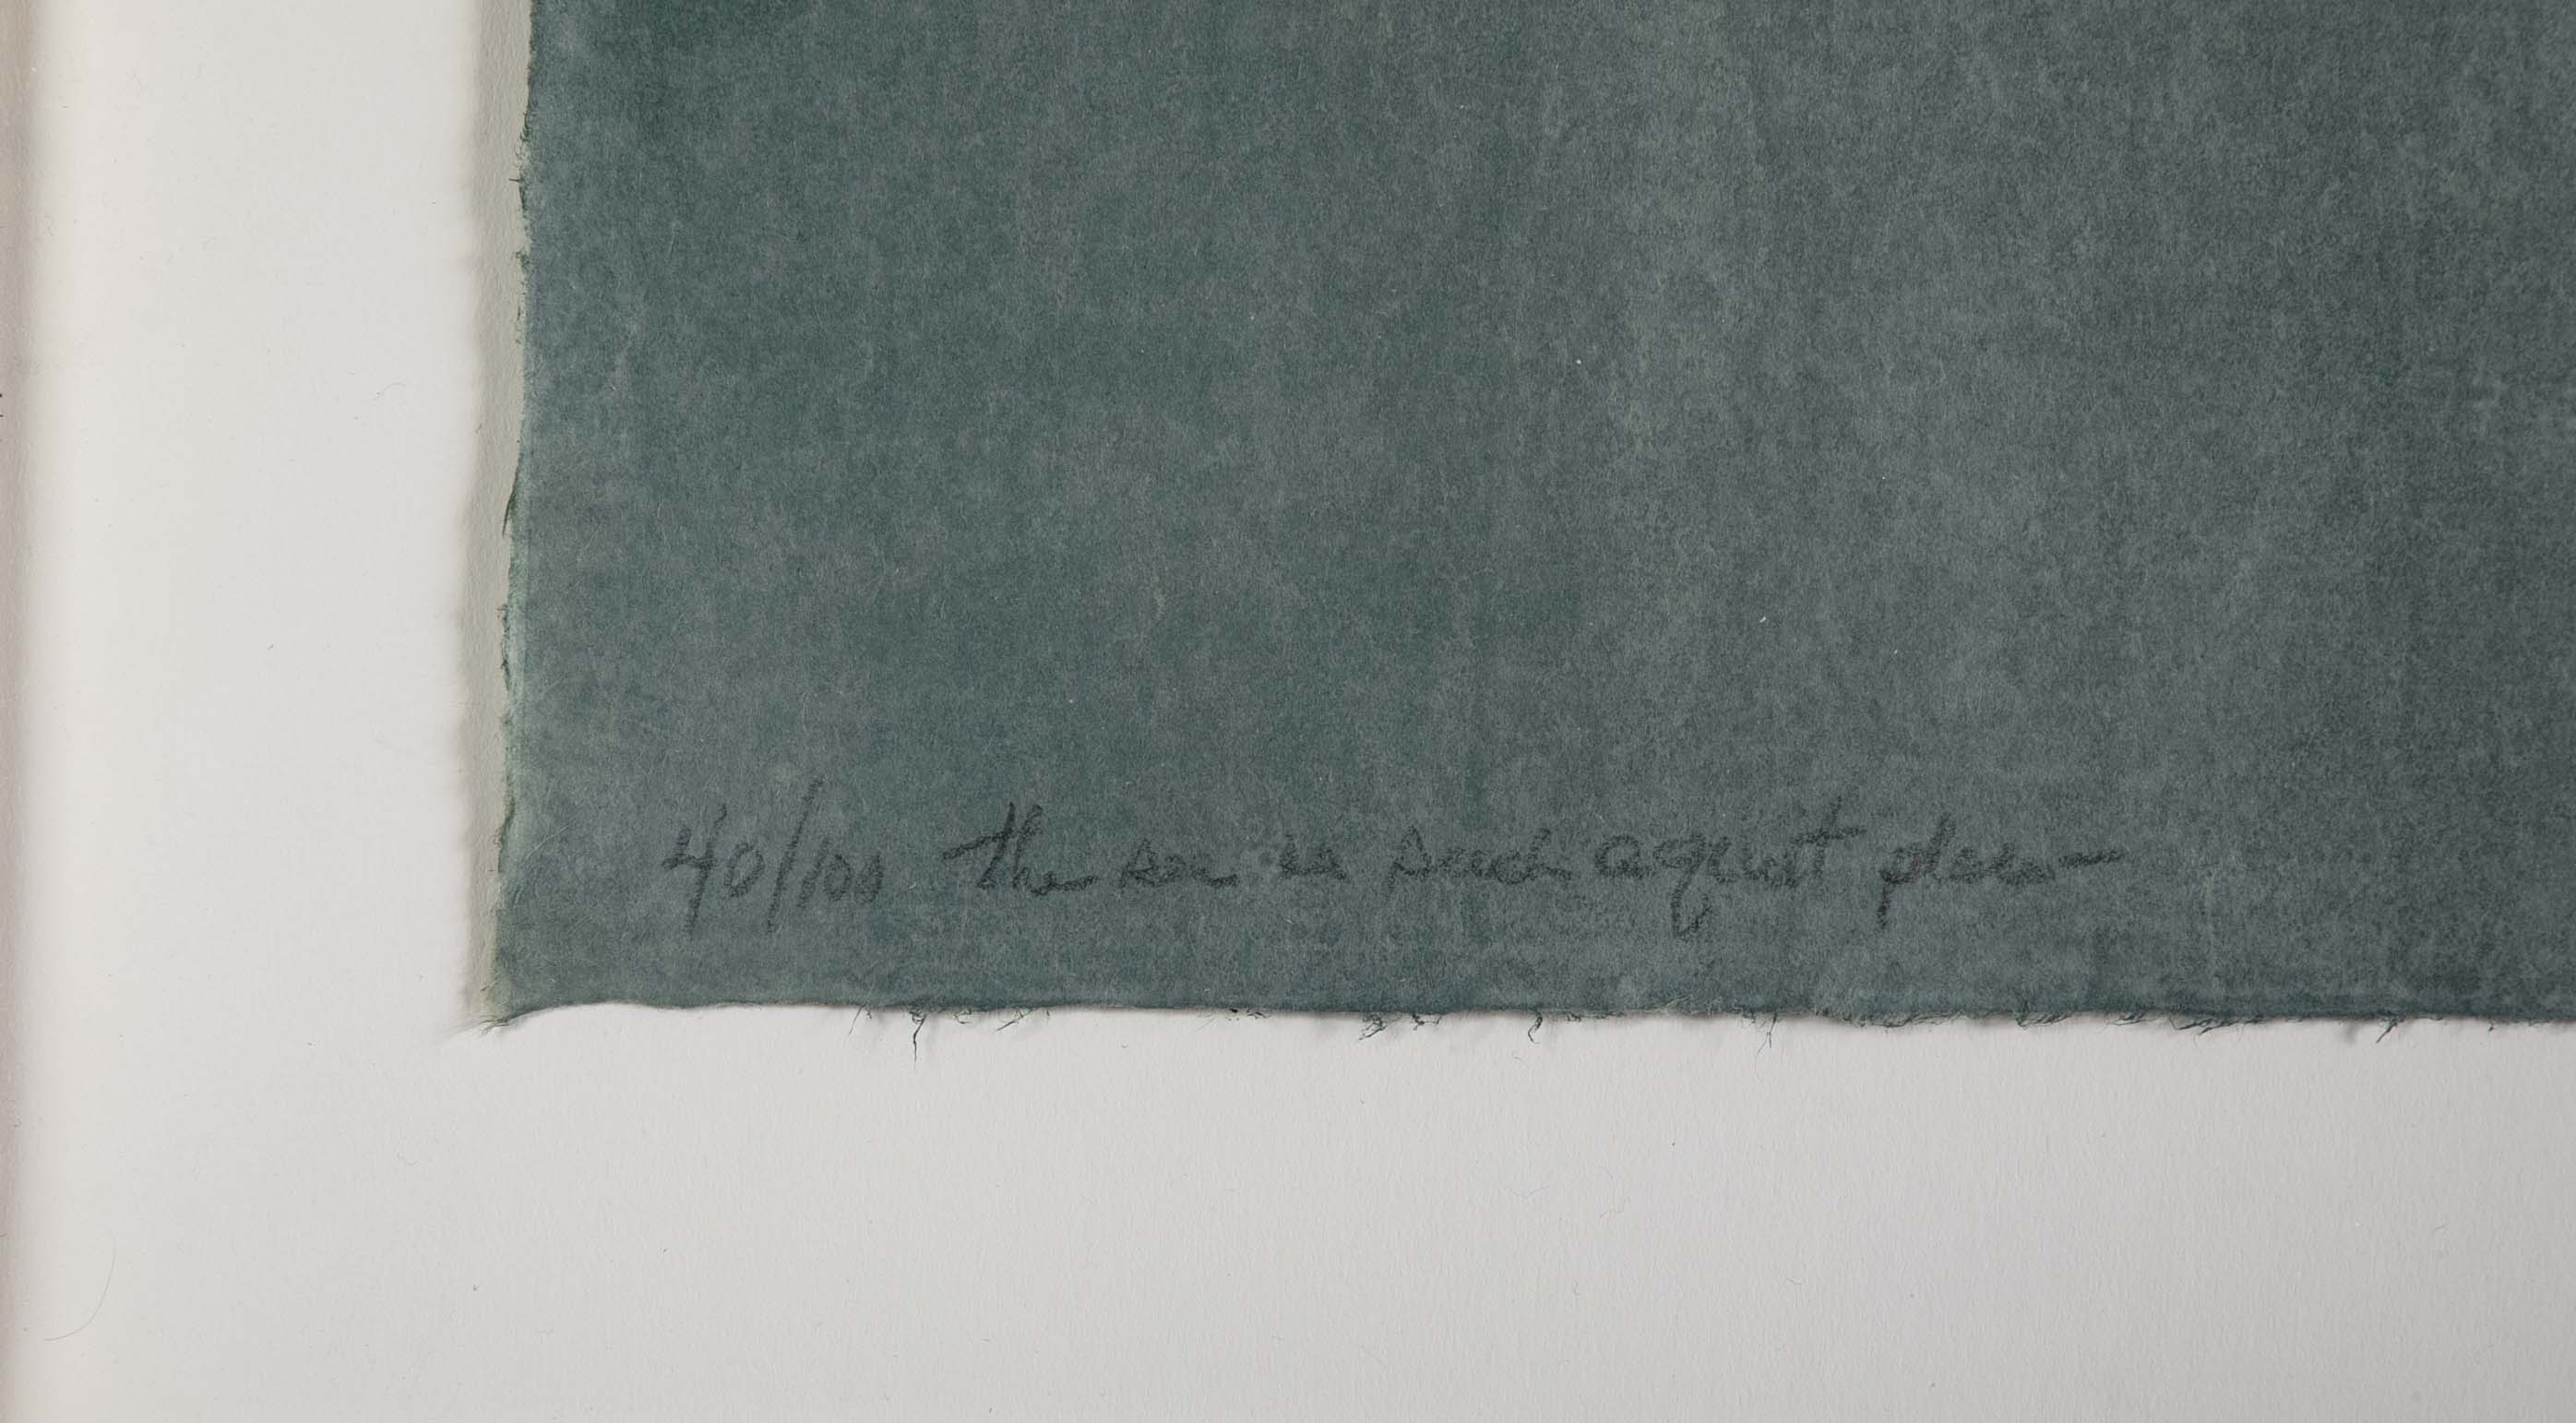 40/100 the sea is such a quiet place